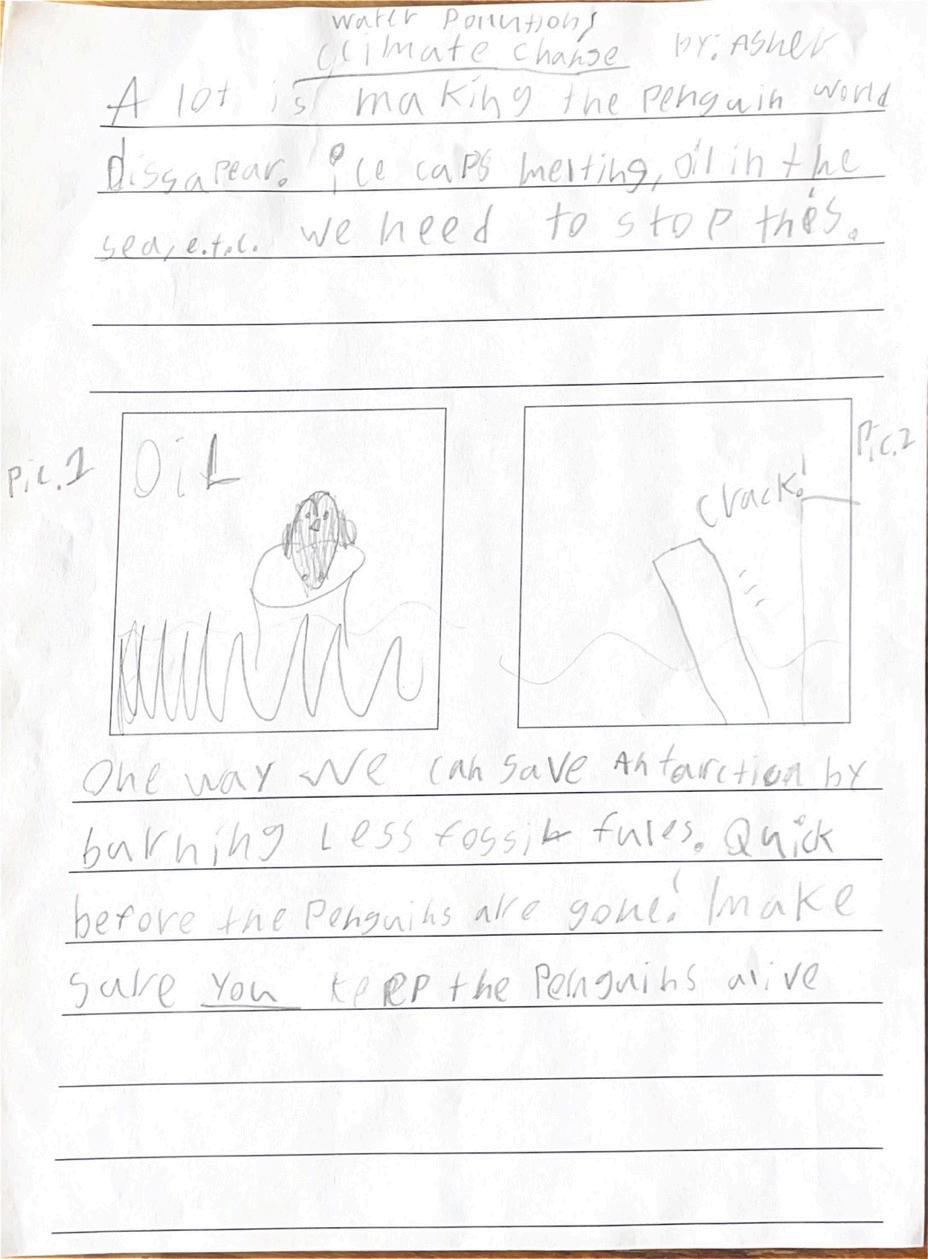 Water Pollution/
Climate Change By: Asher
A lot is making the Penguin world
dissapear. ice caps melting, oil in the
sea, e.t.c. we need to stop this.
Pic.1
Oil
Pic.2
Crack!
One way we can save Antarction by
burning Less fossil fules. Quick
before the Penguins are gone! make
sure You keep the Penguins alive